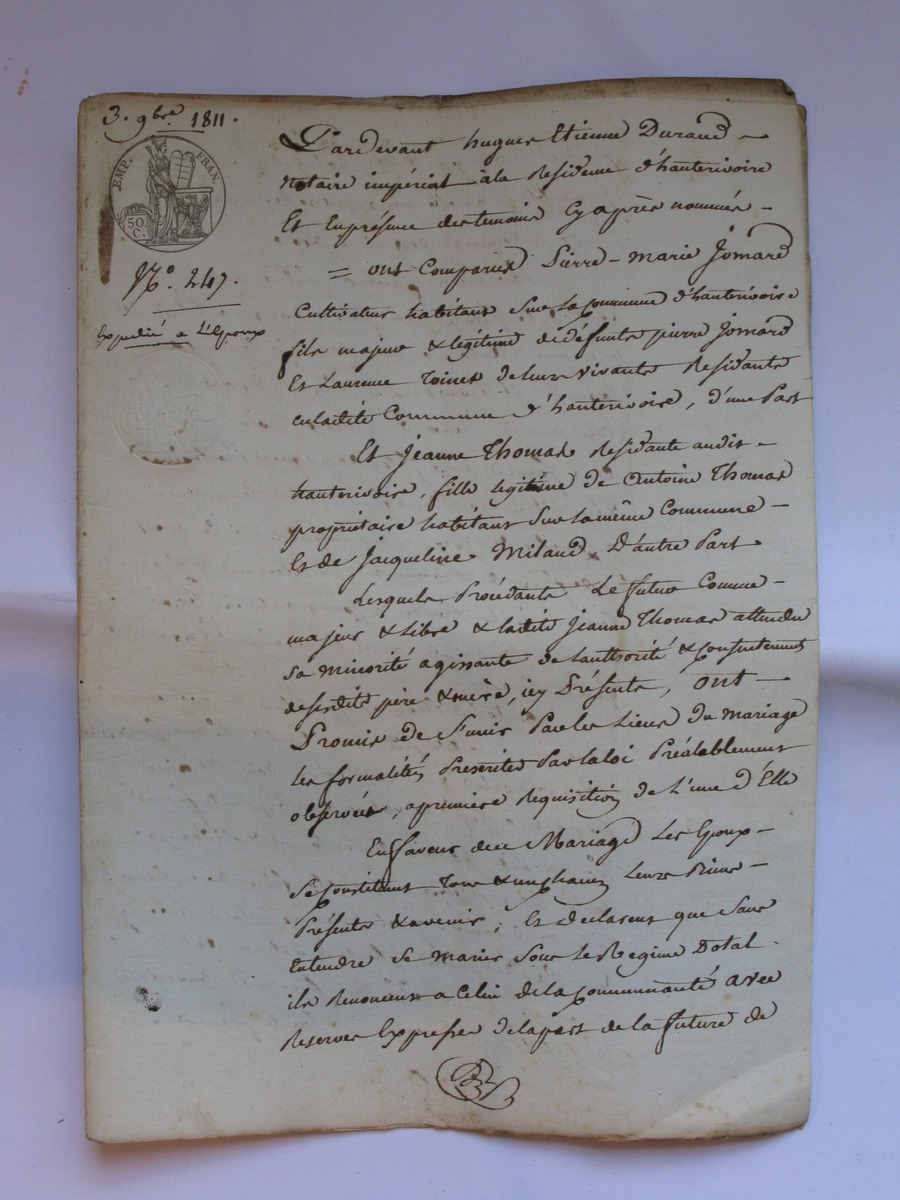 3. 9bre 1811.
EMP. FRAN.
50 C.
N.o 247.
Expedié a L'Epoux
Pardevant hugues Etienne Durand
notaire impérial à la Residence d'hauterivoire
Et En présence des temoins Cy après nommés
= ont Comparus Pierre-Marie Jomard
Cultivateur habitant Sur la Commune d'hauterivoire
fils majeur & légitime de défunts pierre Jomard
Et Laurence Toinet de leur vivants Residants
en ladite Commune d'hauterivoire, d'une Part
Et Jeanne Thomas Residante audit
hauterivoire, fille légitime de Antoine Thomas
propriétaire habitant Sur la même Commune
Et de Jacqueline Milaud, D'autre Part
Lesquels Procédants Le futur Comme
majeur & Libre & ladite Jeanne Thomas attendu
Sa minorité agissante de l'authorité & Consentement
desesdits père & mère, icy Présents, ont
Promis de S'unir Par les Liens du mariage
les formalités Prescrites Par la loi Préalablement
observées, a première Requisition de L'une d'Elle
En faveur du Mariage Les Epoux
Se Constituent Tous & un chacun Leurs Biens
Présents & avenir; Et Declarent que Sans
Entendre Se marier Sous Le Regime Dotal
ils Renoncent a Celui de la Communauté avec
Reserves Expresses de la part de la future de